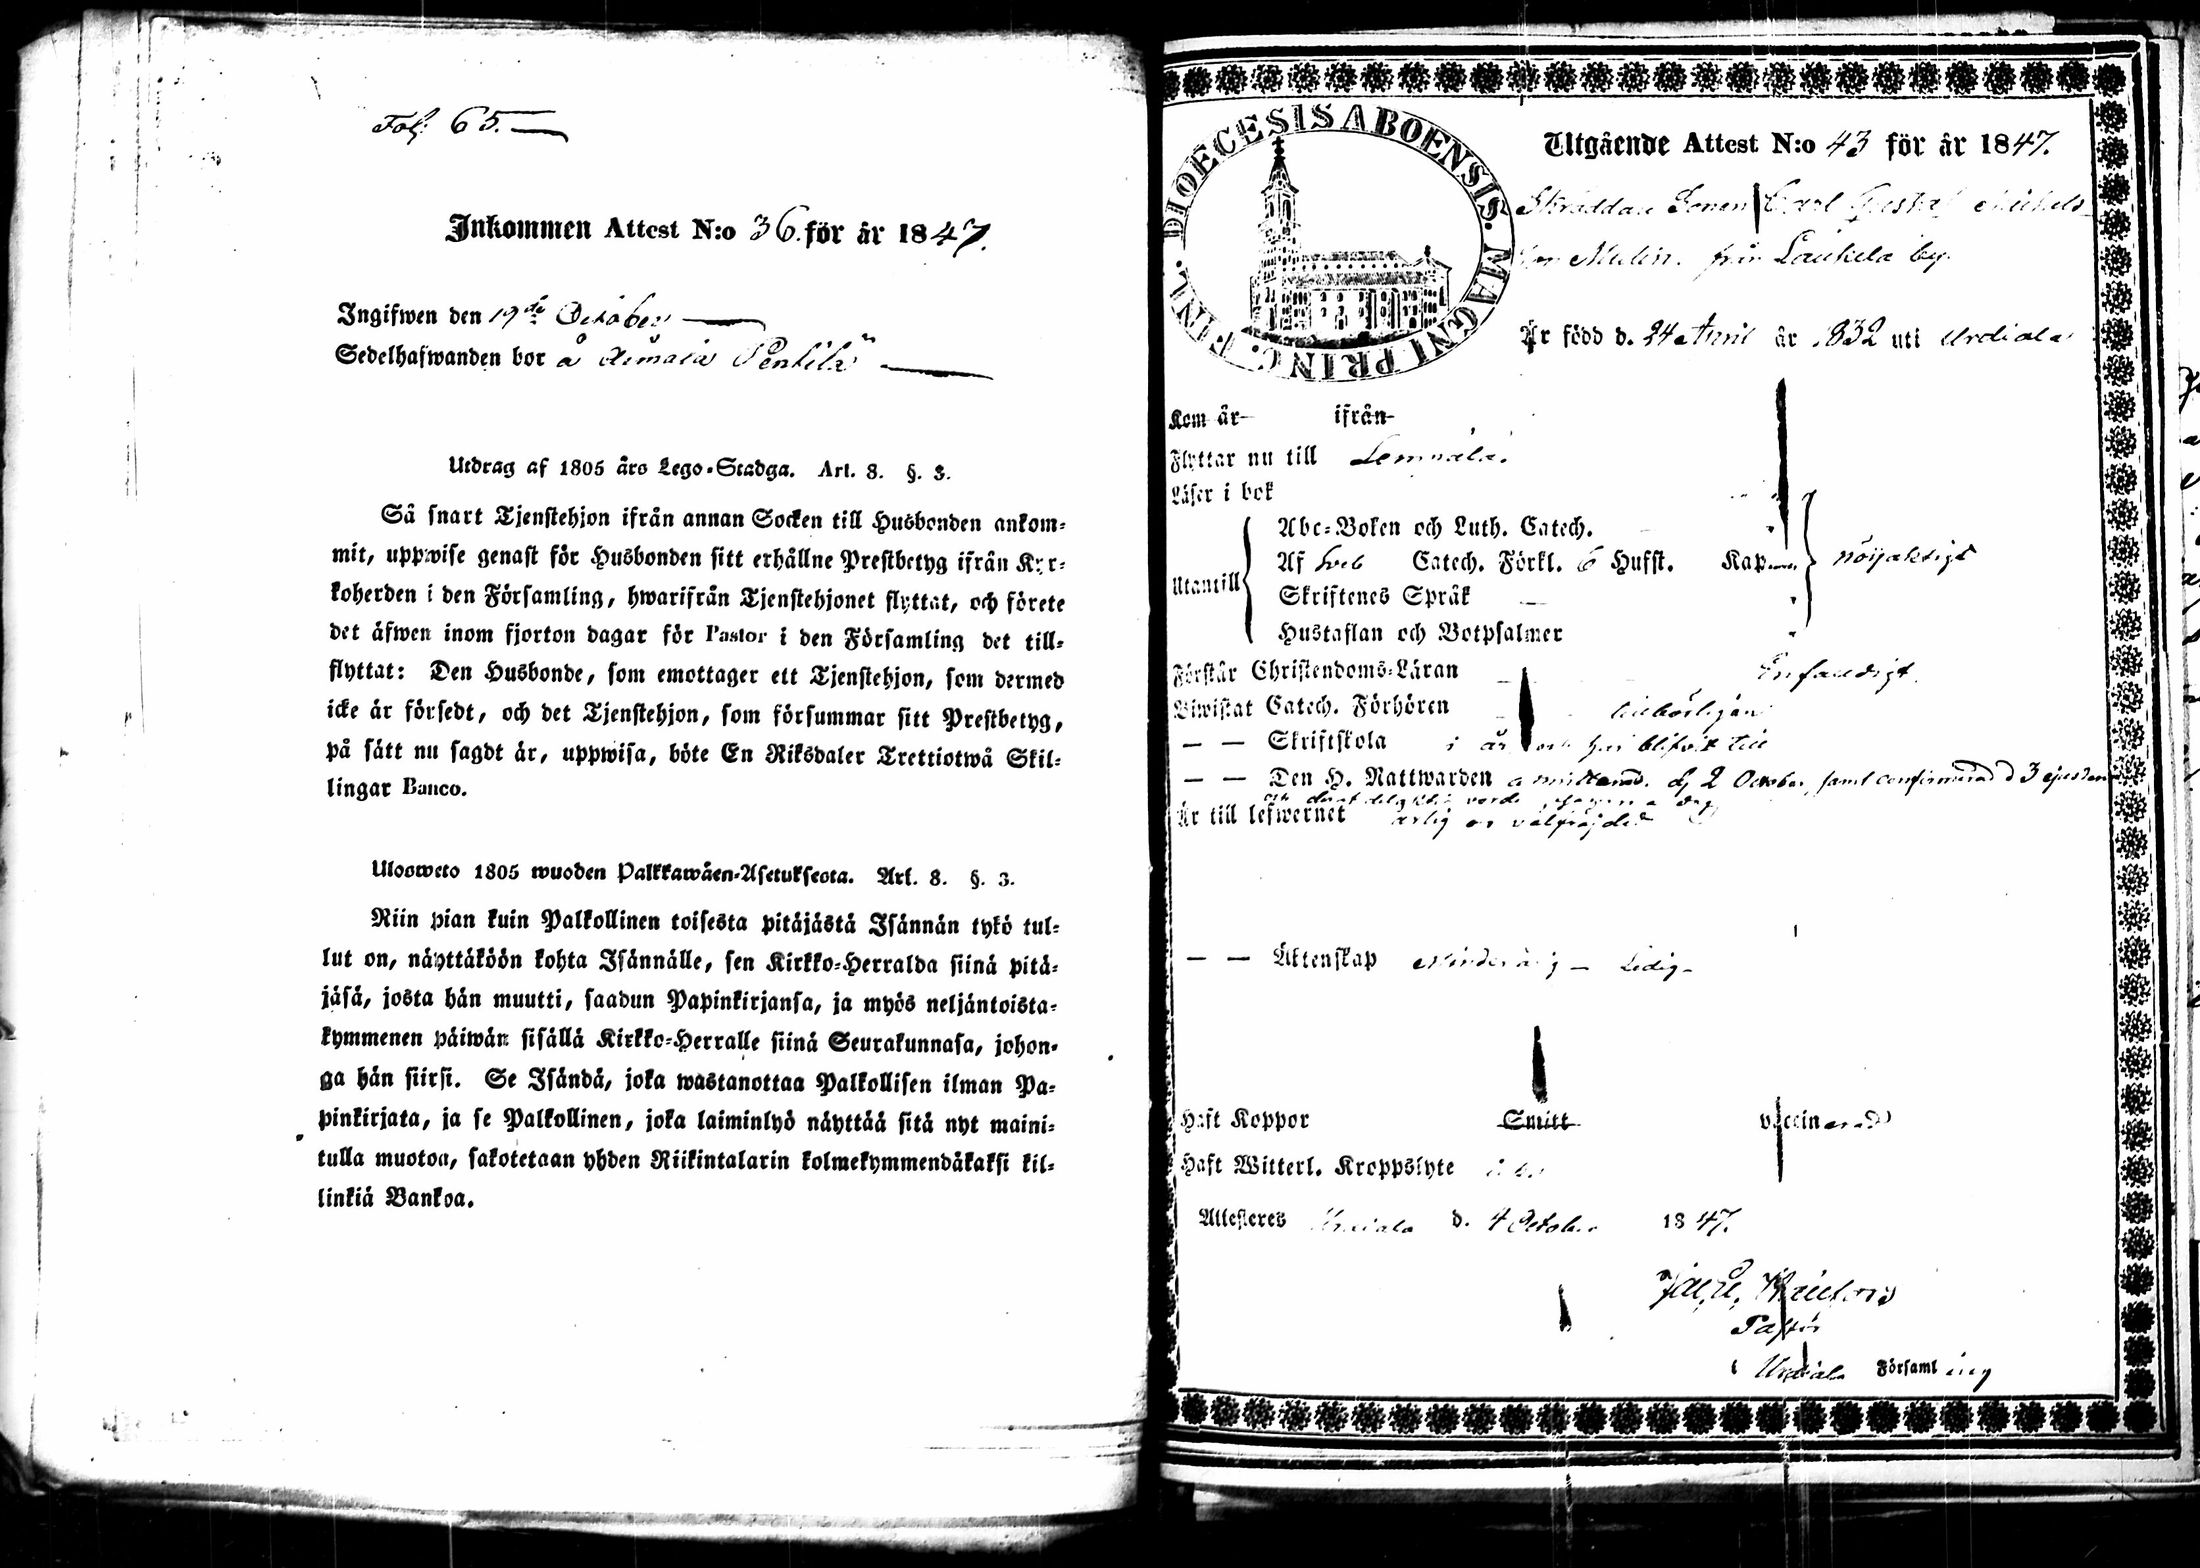 Fol: 65.
Inkommen Attest N:o 36. för år 1847.
Ingifwen den 19de October
Sedelhafwanden bor å Aimala Pentilä
Utdrag af 1805 års Lego-Stadga. Art. 8. §. 3.
Så snart Tjenstehjon ifrån annan Socken till Husbonden ankom-
mit, uppwise genast för Husbonden sitt erhållne Prestbetyg ifrån Kyr-
koherden i den Församling, hwarifrån Tjenstehjonet flyttat, och förete
det äfwen inom fjorton dagar för Pastor i den Församling det till-
flyttat: Den Husbonde, som emottager ett Tjenstehjon, som dermed
icke är försedt, och det Tjenstehjon, som försummar sitt Prestbetyg,
på sätt nu sagdt är, uppwisa, böte En Riksdaler Trettiotwå Skil-
lingar Banco.
Ulosweto 1805 wuoden Palkkawäen-Asetuksesta. Art. 8. §. 3.
Niin pian kuin Palkollinen toisesta pitäjästä Isännän tykö tul-
lut on, näyttäköön kohta Isännälle, sen Kirkko-Herralda siinä pitä-
jäsä, josta hän muutti, saadun Papinkirjansa, ja myös neljäntoista-
kymmenen päiwän sisällä Kirkko-Herralle siinä Seurakunnasa, johon-
ga hän siirsi. Se Isändä, joka wastanottaa Palkollisen ilman Pa-
pinkirjata, ja se Palkollinen, joka laiminlyö näyttää sitä nyt maini-
tulla muotoa, sakotetaan yhden Riikintalarin kolmekymmendäkaksi kil-
linkiä Bankoa.
DIOECESIS ABOENSIS. MAGNI PRINC. FINL.
Utgående Attest N:o 43 för år 1847.
Skräddare Sonen Carl Gustaf Michels-
son Melin. från Laukela by.
Är född d. 24 April år 1832 uti Urdiala
Kom år ifrån
Flyttar nu till Lempäälä.
Läser i bok
Abc-Boken och Luth. Catech.
Utantill Af Sveb Catech. Förkl. 6 Hufst. Kap nöijaktigt
Skriftenes Språk
Hustaflan och Botpsalmer
Förstår Christendoms-Läran Enfaldigt.
Biwistat Catech. Förhören behörligen
— — Skriftskola i år och har blifvit till
— — Den H. Nattwarden admitterad. d. 2 October, samt confirmerad d 3 ejusdem
Är till lefwernet ärlig och välfrejdad
— — Äktenskap Minderårig — Ledig —
Haft Koppor Smitt vaccinerad
Haft Witterl. Kroppslyte
Attesteres Urdiala d. 4 October 1847.
Pastor
i Urdiala Församling